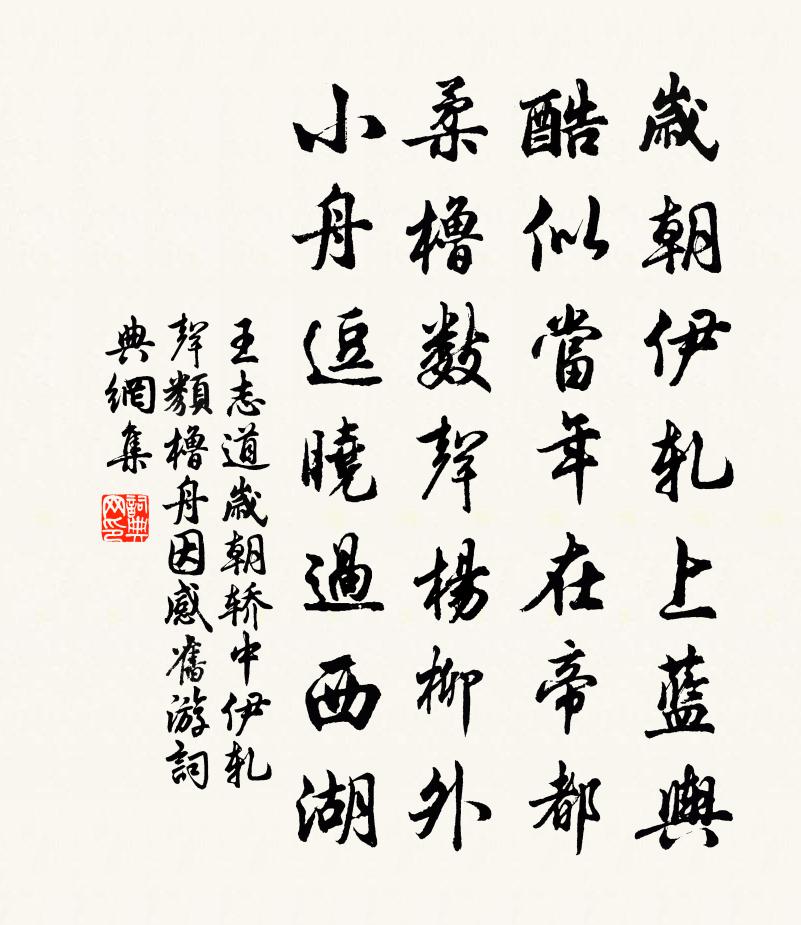 歲朝伊軋上藍輿
酷似當年在帝都
柔櫓數聲楊柳外
小舟逗曉過西湖
王志道歲朝轿中伊軋
聲類櫓舟因感舊游詞
典網集
詞典網印